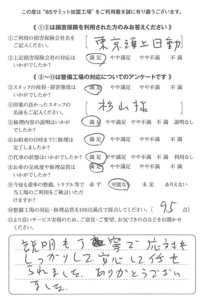 この度は"BSサミット加盟工場"をご利用戴き誠に有り難うございます。
《①②は損害保険を利用された方のみお答えください》
①ご利用の損害保険会社名をご記入ください。
東京海上日動
②上記損害保険会社の対応はいかがでしたか?
満足 やや満足 やや不満 不満
《③～⑪は整備工場の対応についてのアンケートです》
③スタッフの挨拶・接客態度は
満足 やや満足 やや不満 不満
④印象の良かったスタッフの名前をご記入ください。
杉山様
⑤修理内容の説明はいかがでしたか?
満足 やや満足 やや不満 説明なし
⑥お約束の日時までに修理は完了しましたか?
満足 やや満足 やや不満 不満
⑦代車の状態はいかがでしたか?
満足 やや満足 やや不満 利用なし
⑧お車の完成度や修理品質はいかがでしたか?
満足 やや満足 やや不満 不満
⑨今後も愛車の整備、トラブル等で当工場のご利用をご検討いただけますか?
必ず 可能な 未定 ありえない
⑩整備工場の対応・修理品質を100点満点で採点してください。
95点
⑪より良いサービス実現のため、ご意見・ご要望、お気づきの点などお聞かせください。
説明も丁寧で応対も
しっかりして安心して任せ
られました。ありがとうござい
ました。